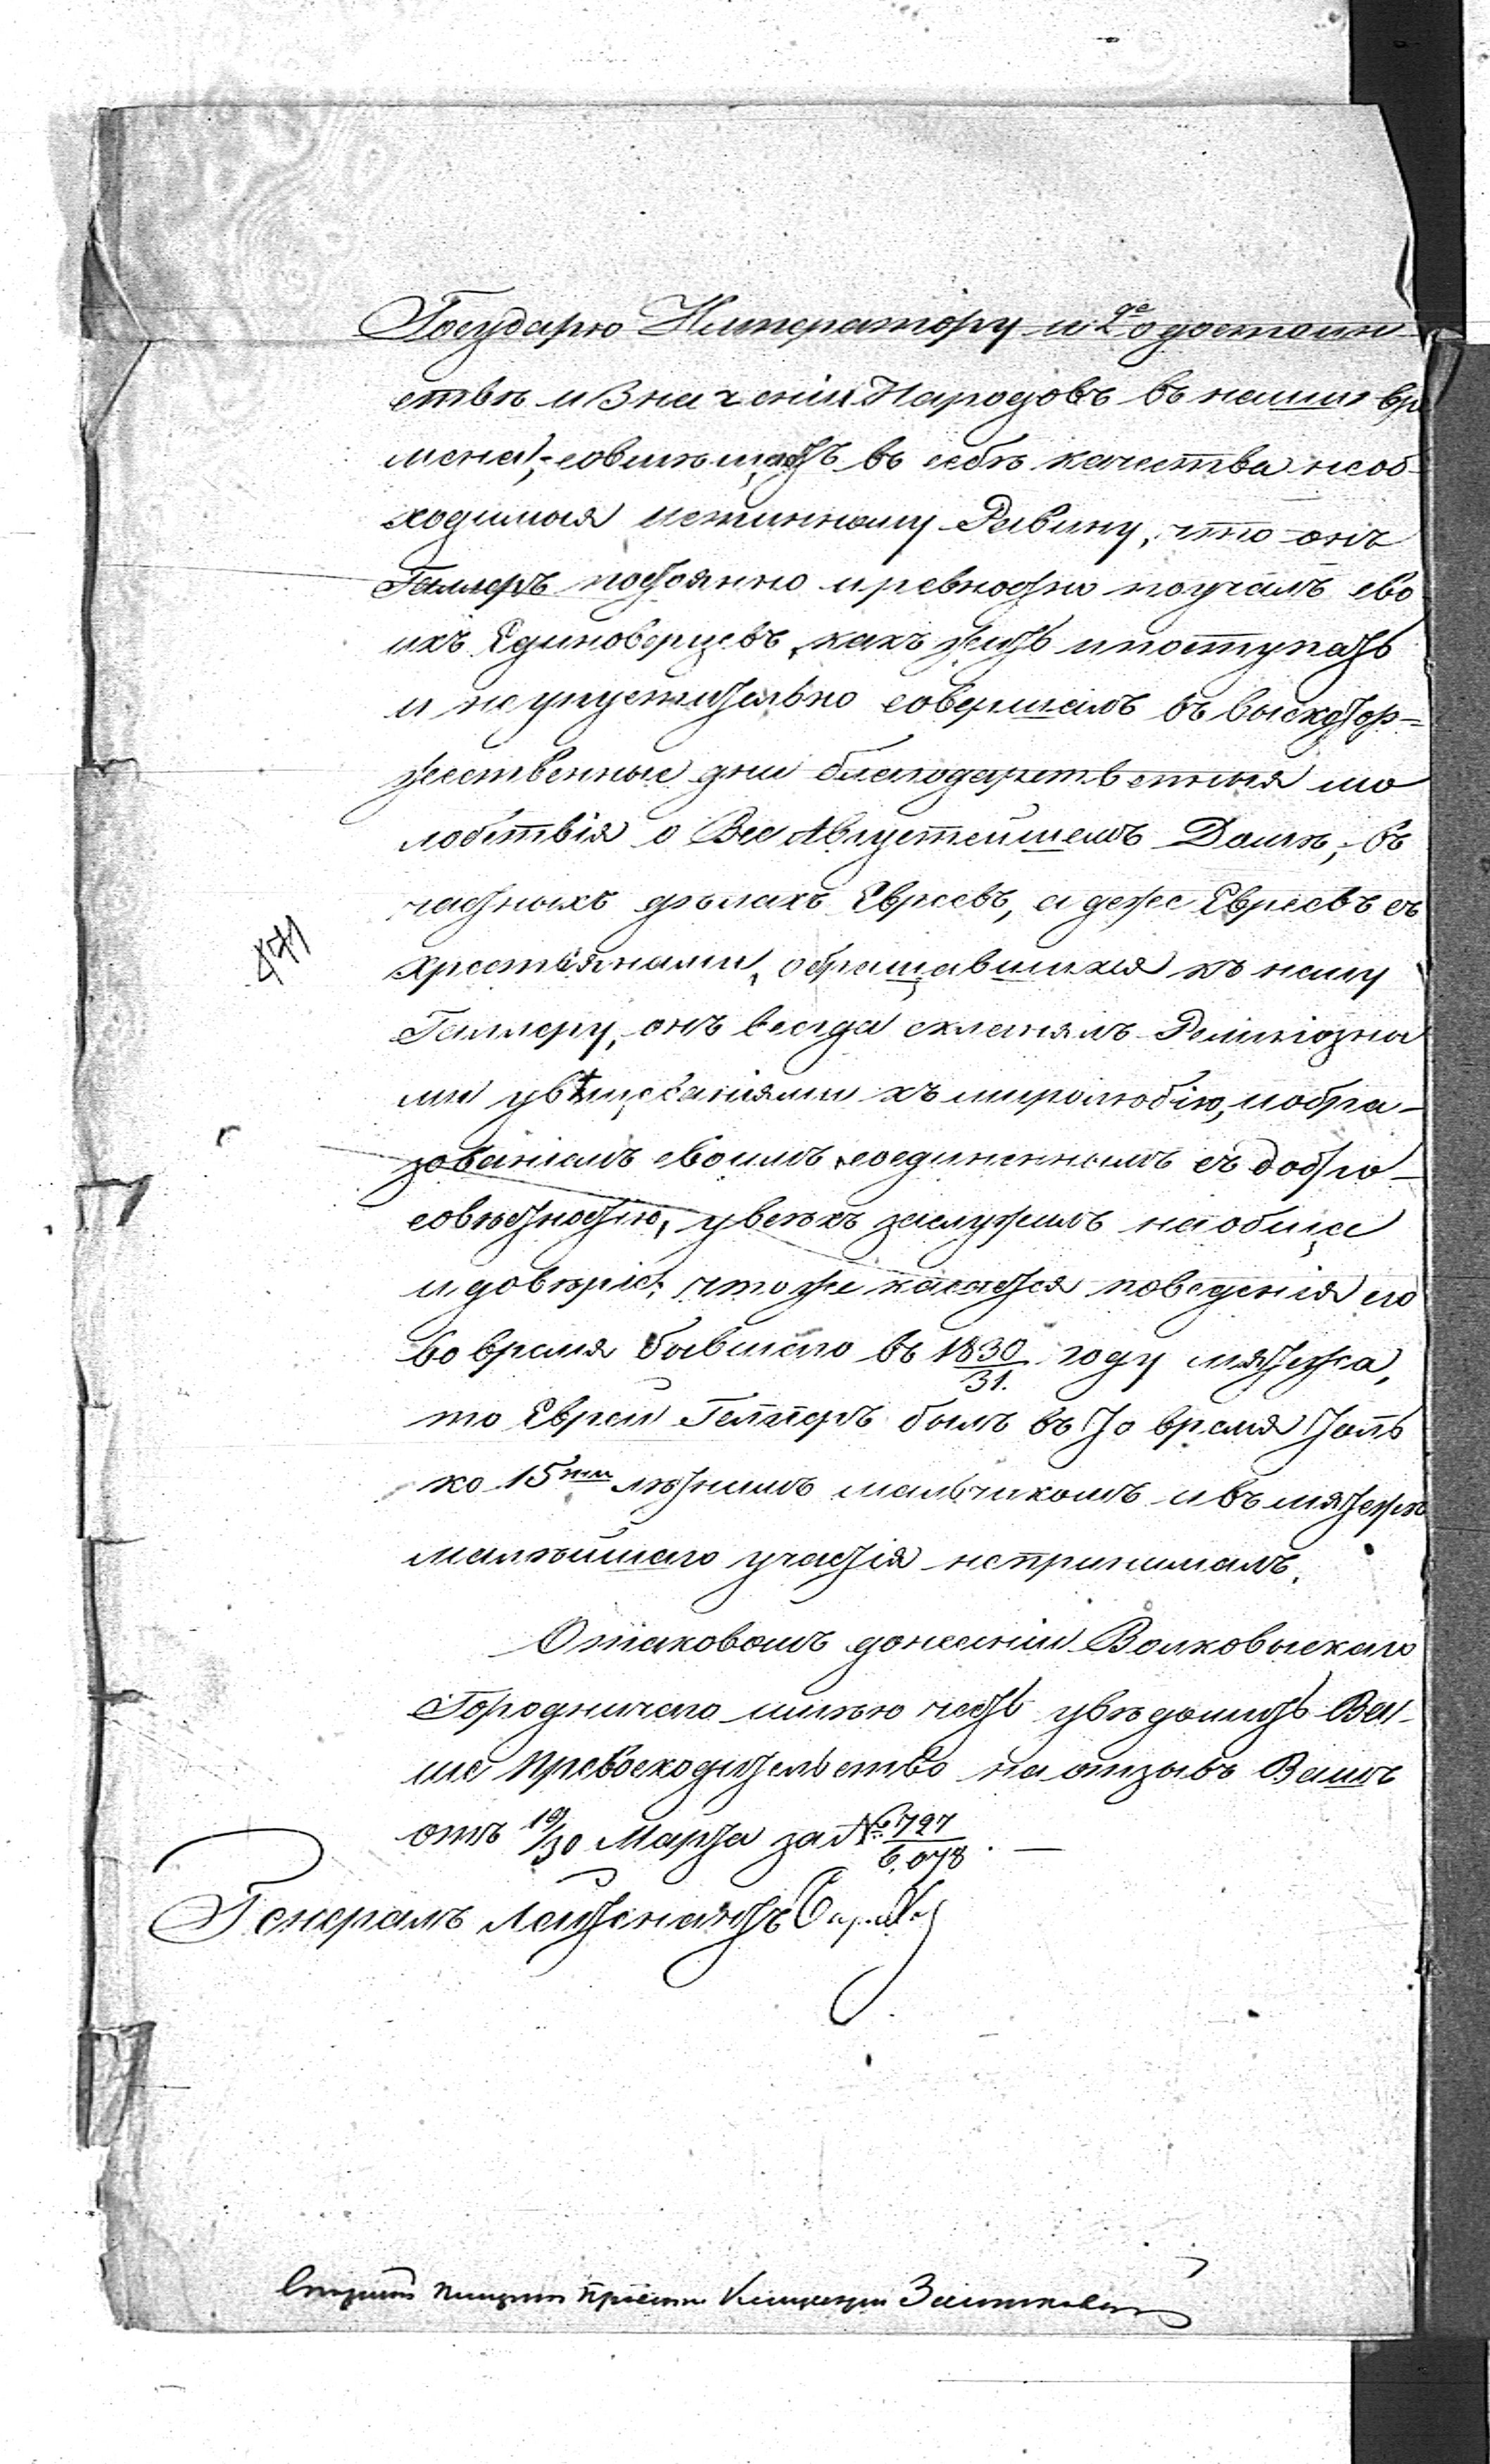 Государю Императору и 2е о достоин-
ствѣ и значеніи Народовъ въ наши вре
мена, совмѣщаетъ въ себѣ качества необ-
ходимыя истинному Равину, что онъ
Геллеръ постоянно и ревностно поучалъ сво
ихъ Единоверцевъ, какъ жить и поступать
и неупустительно совершалъ въ высокотор-
жественные дни благодарственныя мо
лебствія о Все Августейшемъ Домѣ, въ
частныхъ дѣлахъ Евреевъ, а даже Евреевъ съ
христіянами, обращавшихся къ нему
Геллеру, онъ всегда склонялъ Религіозны
ми увѣщеваніями къ миролюбію, и обра-
зованіемъ своимъ соединеннымъ съ добро-
совѣстностію, у всѣхъ заслужилъ наобще
и довѣріе; что же касается поведенія его
во время бывшаго въ 1830/31. году мятежа,
то Еврей Геллеръ былъ въ то время толь
ко 15ти лѣтнимъ мальчикомъ и въ мятежѣ
малѣйшаго участія непринималъ.
О таковомъ донесеніи Волковыскаго
Городничаго имѣю честь увѣдомить Ва-
ше Превосходительство на отзывъ Вашъ
отъ 18/30 Марта за № 727/6,078. —
Генералъ Лейтенантъ
471